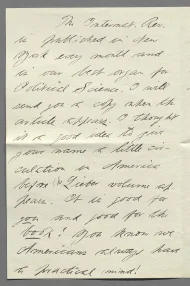 The Internat. Rev.
is published in New
York every month and
is our best organ for
Political Science. I will
send you a copy when the
article appears. I thought
it a good idea to give
your name a little cir-
culation in America
before Lieber volume ap-
pears. It is good for
you and good for the
book! You know we
Americans always have
a practical mind!